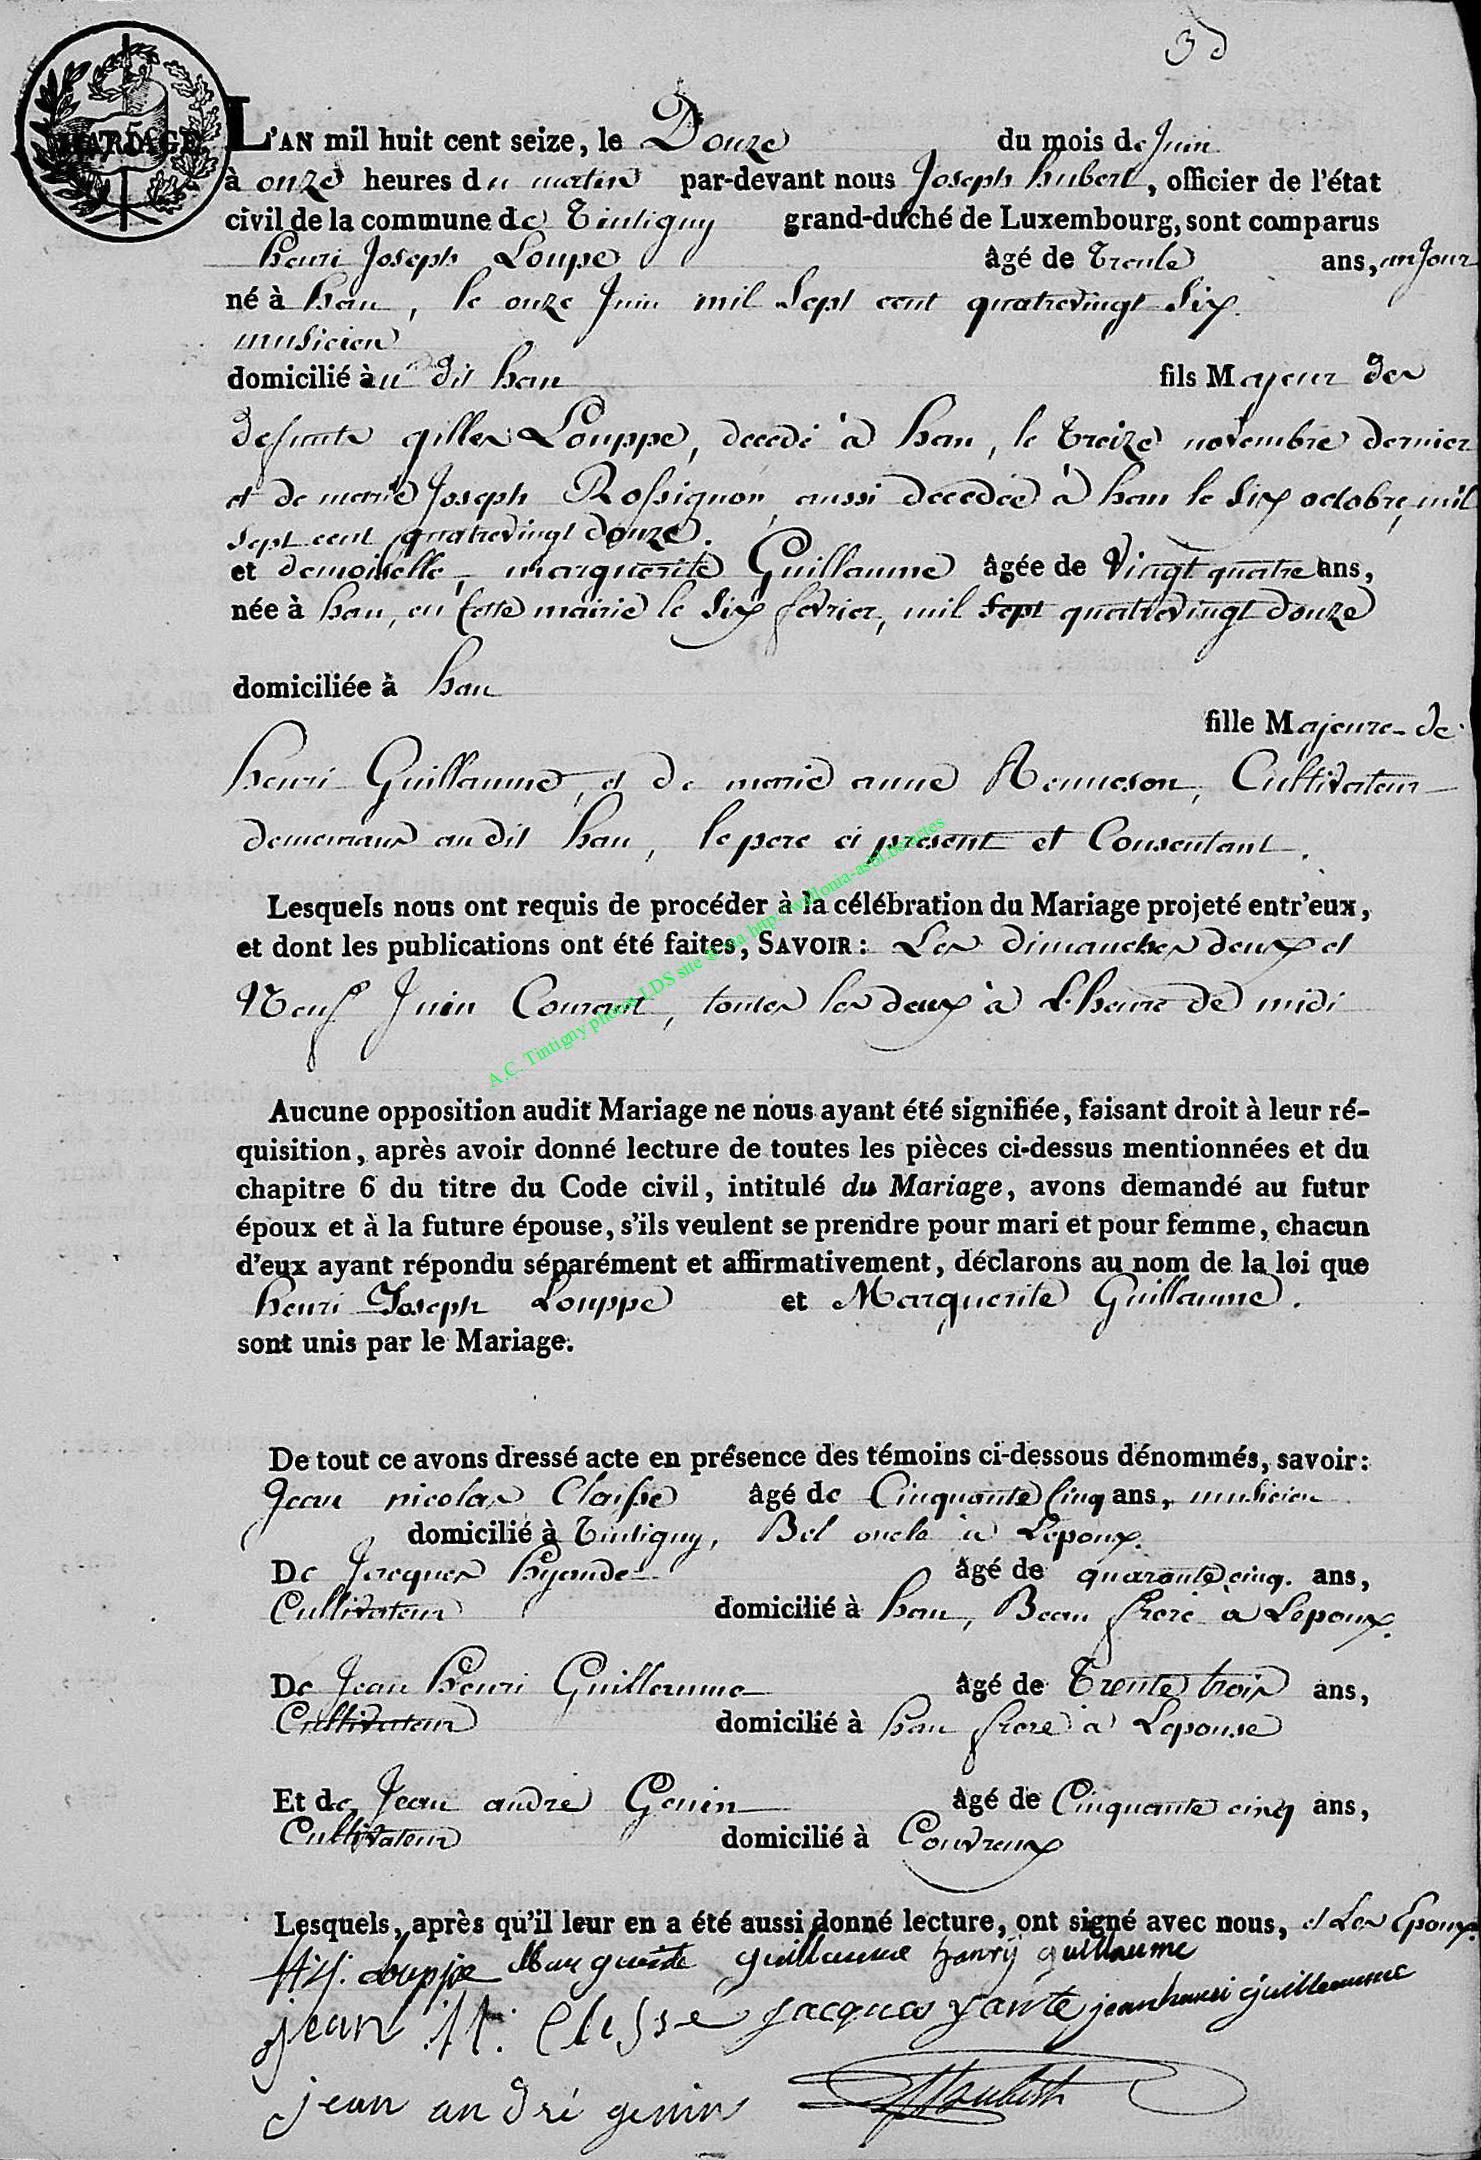 3
MARIAGE
L'AN mil huit cent seize, le Douze du mois de Juin
à onze heures du matin par-devant nous Joseph hubert, officier de l'état
civil de la commune de Tintigny grand-duché de Luxembourg, sont comparus
henri Joseph Loupe âgé de Trente ans, un Jour
né à han, le onze Juin mil Sept cent quatrevingt Six.
musicien
domicilié àu dit han fils Majeur des
defunts gilles Louppe, decedé à han, le Treize novembre dernier
et de marie Joseph Rossignon aussi decedée à han le Six octobre, mil
sept cent quatrevingt douze.
et demoiselle, marguerite Guillaume âgée de Vingt quatre ans,
née à han, en Cette mairie le Six fevrier, mil sept quatrevingt douze
domiciliée à han
fille Majeure de
henri Guillaume, et de marie anne Renneson, Cultivateur
demeurans au dit han, le pere ci present et Consentant.
Lesquels nous ont requis de procéder à la célébration du Mariage projeté entr'eux,
et dont les publications ont été faites, SAVOIR: Les dimanches deux et
Neuf Juin Courant, toutes les deux à L'heure de midi
A.C. Tintigny photos LDS site via http://wallonia-asbl.be/actes
Aucune opposition audit Mariage ne nous ayant été signifiée, faisant droit à leur ré-
quisition, après avoir donné lecture de toutes les pièces ci-dessus mentionnées et du
chapitre 6 du titre du Code civil, intitulé du Mariage, avons demandé au futur
époux et à la future épouse, s'ils veulent se prendre pour mari et pour femme, chacun
d'eux ayant répondu séparément et affirmativement, déclarons au nom de la loi que
henri Joseph Louppe et Marguerite Guillaume.
sont unis par le Mariage.
De tout ce avons dressé acte en présence des témoins ci-dessous dénommés, savoir:
Jean nicolas Claisse âgé de Cinquante Cinq ans, musicien
domicilié à Tintigny, Bel oncle à Lepoux.
De Jacques hyande âgé de quarante cinq. ans,
Cultivateur domicilié à han, Beau frere à Lepoux.
De Jean henri Guillaume âgé de Trente trois ans,
Cultivateur domicilié à han frere à Lepouse
Et de Jean andré Genin âgé de Cinquante cinq ans,
Cultivateur domicilié à Couvreux
Lesquels, après qu'il leur en a été aussi donné lecture, ont signé avec nous, et Les Epoux.
H:J: Louppe Marguerite guillaume hanry guillaume
jean N: Clesse Jacques yante jean henri guilleaume
jean andré genin J Hubert